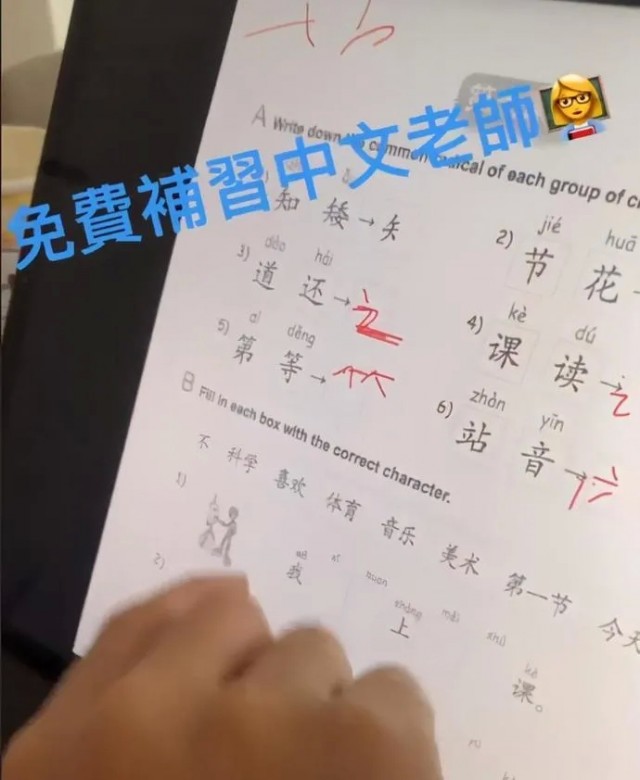 免費補習中文老師👩‍🏫
A Write down the common radical of each group of
知 矮 → 矢
2) jié huā
节 花
3) dào hái
道 还 → 辶
4) kè dú
课 读 → 讠
5) dì děng
第 等 → ⺮
6) zhàn yīn
站 音 →
B Fill in each box with the correct character.
不 科学 喜欢 体育 音乐 美术 第一节 今天
1)
我
shàng
上
2)
kè
课。